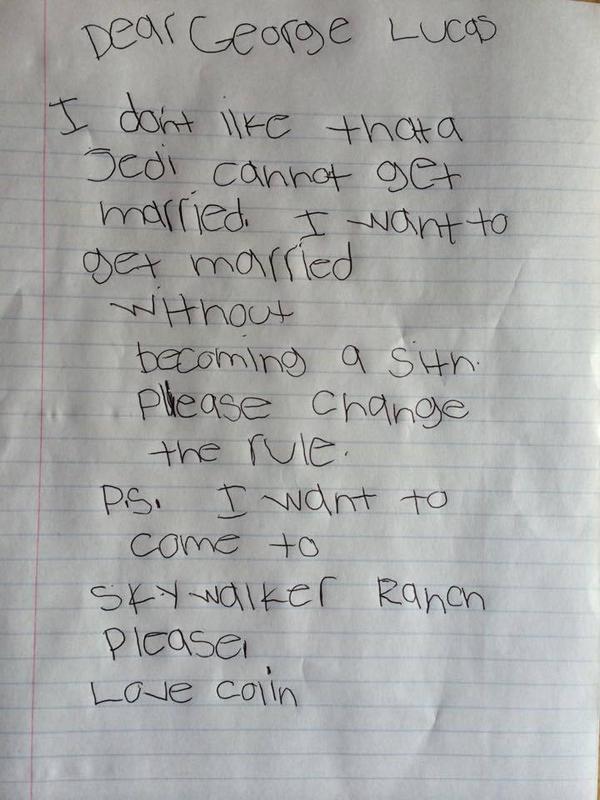 Dear George Lucas
I don't like that a
Jedi cannot get
married. I want to
get married
without
becoming a Sith.
Please change
the rule.
P.S. I want to
come to
Skywalker Ranch
please,
Love Colin